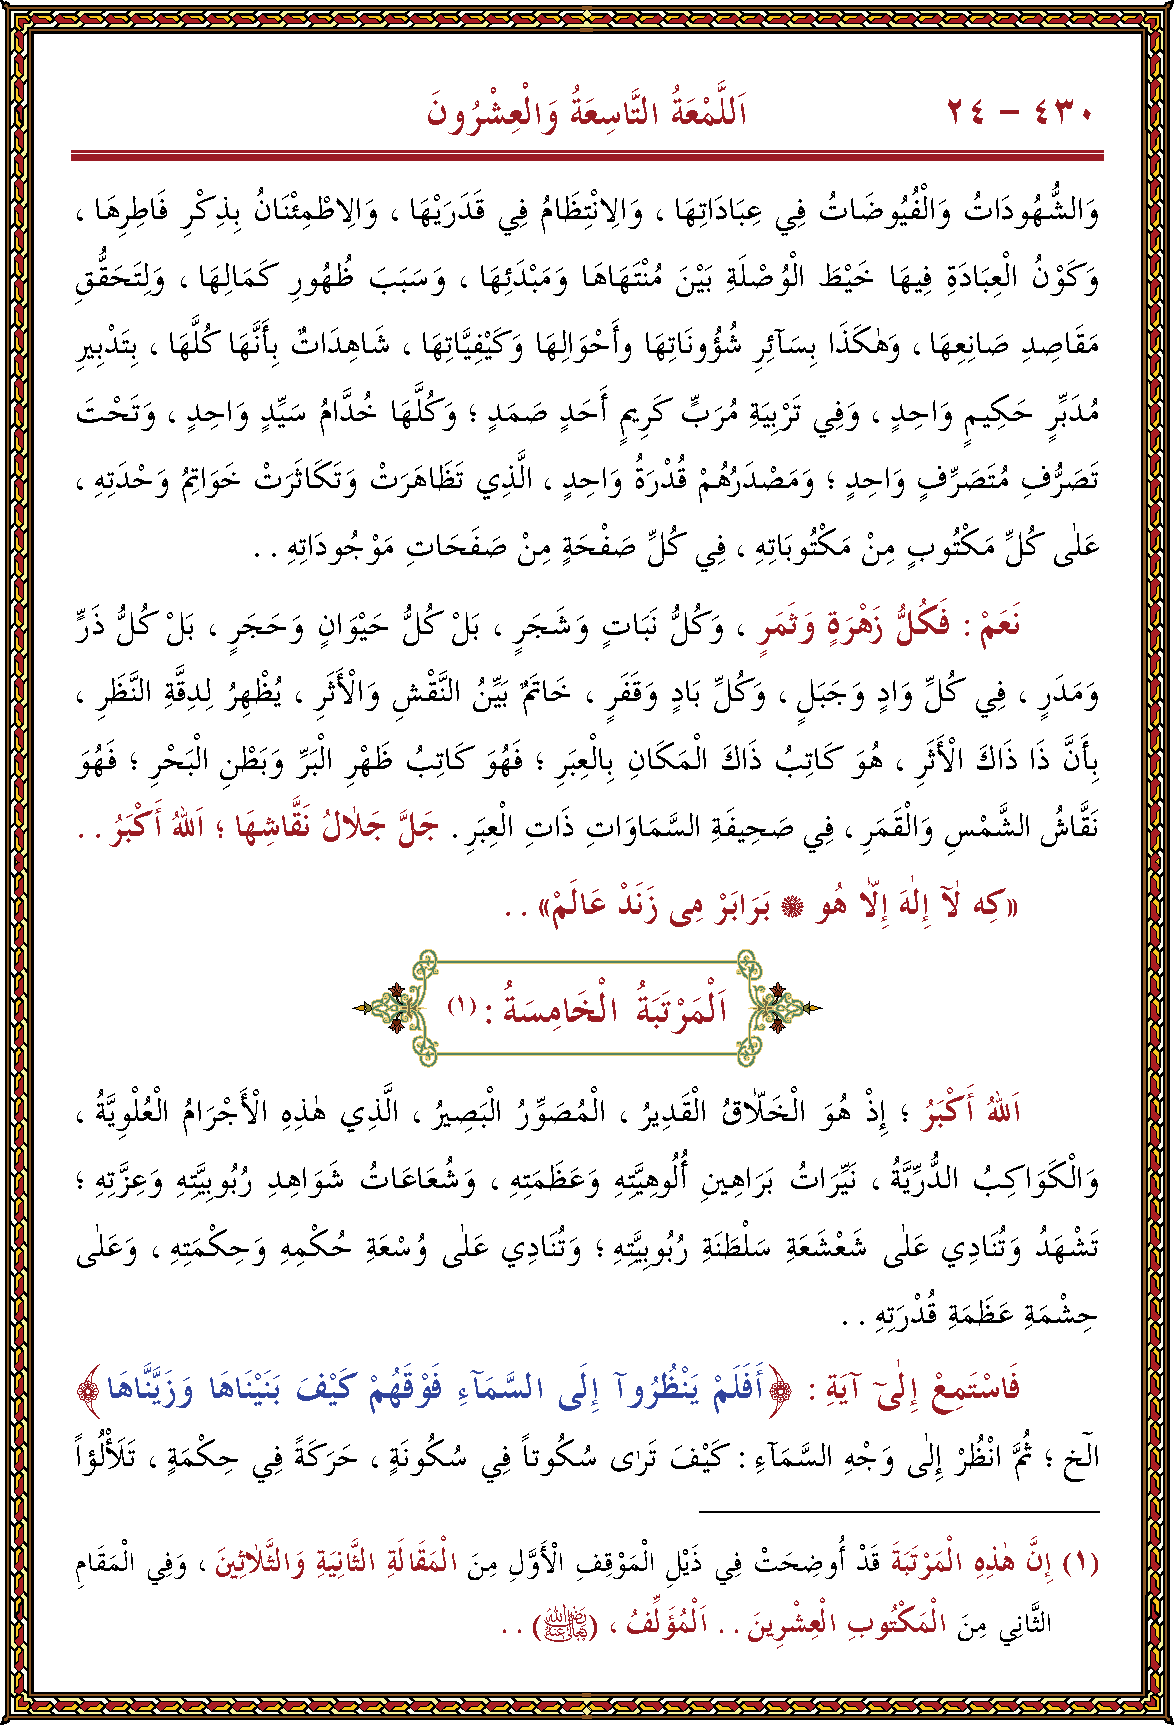 ٤٣٠ – ٢٤ اَللَّمْعَةُ التَّاسِعَةُ وَالْعِشْرُونَ
وَالشُّهُودَاتُ وَالْفُيُوضَاتُ فِي عِبَادَاتِهَا ، وَالِانْتِظَامُ فِي قَدَرَيْهَا ، وَالِاطْمِئْنَانُ بِذِكْرِ فَاطِرِهَا ،
وَكَوْنُ الْعِبَادَةِ فِيهَا خَيْطَ الْوُصْلَةِ بَيْنَ مُنْتَهَاهَا وَمَبْدَئِهَا ، وَسَبَبَ ظُهُورِ كَمَالِهَا ، وَلِتَحَقُّقِ
مَقَاصِدِ صَانِعِهَا ، وَهٰكَذَا بِسَآئِرِ شُؤُنَاتِهَا وَأَحْوَالِهَا وَكَيْفِيَّاتِهَا ، شَاهِدَاتٌ بِأَنَّهَا كُلَّهَا ، بِتَدْبِيرِ
مُدَبِّرٍ حَكِيمٍ وَاحِدٍ ، وَفِي تَرْبِيَةِ مُرَبٍّ كَرِيمٍ أَحَدٍ صَمَدٍ ؛ وَكُلَّهَا خُدَّامُ سَيِّدٍ وَاحِدٍ ، وَتَحْتَ
تَصَرُّفِ مُتَصَرِّفٍ وَاحِدٍ ؛ وَمَصْدَرُهُمْ قُدْرَةُ وَاحِدٍ ، الَّذِي تَظَاهَرَتْ وَتَكَاثَرَتْ خَوَاتِمُ وَحْدَتِهِ ،
عَلٰى كُلِّ مَكْتُوبٍ مِنْ مَكْتُوبَاتِهِ ، فِي كُلِّ صَفْحَةٍ مِنْ صَفَحَاتِ مَوْجُودَاتِهِ . .
نَعَمْ : فَكُلُّ زَهْرَةٍ وَثَمَرٍ ، وَكُلُّ نَبَاتٍ وَشَجَرٍ ، بَلْ كُلُّ حَيْوَانٍ وَحَجَرٍ ، بَلْ كُلُّ ذَرٍّ
وَمَدَرٍ ، فِي كُلِّ وَادٍ وَجَبَلٍ ، وَكُلِّ بَادٍ وَقَفَرٍ ، خَاتَمٌ بَيِّنُ النَّقْشِ وَالْأَثَرِ ، يُظْهِرُ لِدِقَّةِ النَّظَرِ ،
بِأَنَّ ذَا ذَاكَ الْأَثَرِ ، هُوَ كَاتِبُ ذَاكَ الْمَكَانِ بِالْعِبَرِ ؛ فَهُوَ كَاتِبُ ظَهْرِ الْبَرِّ وَبَطْنِ الْبَحْرِ ؛ فَهُوَ
نَقَّاشُ الشَّمْسِ وَالْقَمَرِ ، فِي صَحِيفَةِ السَّمَاوَاتِ ذَاتِ الْعِبَرِ . جَلَّ جَلَالُ نَقَّاشِهَا ؛ اَللهُ أَكْبَرُ . .
«كِه لَآ إِلٰهَ إِلَّا هُو ۞ بَرَابَرْ مِى زَنَدْ عَالَمْ» . .
اَلْمَرْتَبَةُ الْخَامِسَةُ : (١)
اَللهُ أَكْبَرُ ؛ إِذْ هُوَ الْخَلَّاقُ الْقَدِيرُ ، الْمُصَوِّرُ الْبَصِيرُ ، الَّذِي هٰذِهِ الْأَجْرَامُ الْعُلْوِيَّةُ ،
وَالْكَوَاكِبُ الدُّرِّيَّةُ ، نَيِّرَاتُ بَرَاهِينِ أُلُوهِيَّتِهِ وَعَظَمَتِهِ ، وَشُعَاعَاتُ شَوَاهِدِ رُبُوبِيَّتِهِ وَعِزَّتِهِ ؛
تَشْهَدُ وَتُنَادِي عَلٰى شَعْشَعَةِ سَلْطَنَةِ رُبُوبِيَّتِهِ ؛ وَتُنَادِي عَلٰى وُسْعَةِ حُكْمِهِ وَحِكْمَتِهِ ، وَعَلٰى
حِشْمَةِ عَظَمَةِ قُدْرَتِهِ . .
فَاسْتَمِعْ إِلٰٓى آيَةِ : ﴿أَفَلَمْ يَنْظُرُوآ إِلَى السَّمَآءِ فَوْقَهُمْ كَيْفَ بَنَيْنَاهَا وَزَيَّنَّاهَا﴾
الٓخ ؛ ثُمَّ انْظُرْ إِلٰى وَجْهِ السَّمَآءِ : كَيْفَ تَرٰى سُكُوتاً فِي سُكُونَةٍ ، حَرَكَةً فِي حِكْمَةٍ ، تَلَأْلُؤاً
(١) إِنَّ هٰذِهِ الْمَرْتَبَةَ قَدْ أُوضِحَتْ فِي ذَيْلِ الْمَوْقِفِ الْأَوَّلِ مِنَ الْمَقَالَةِ الثَّانِيَةِ وَالثَّلَاثِينَ ، وَفِي الْمَقَامِ
الثَّانِي مِنَ الْمَكْتُوبِ الْعِشْرِينَ . . اَلْمُؤَلِّفُ ، (رضي الله تعالى عنه) . .